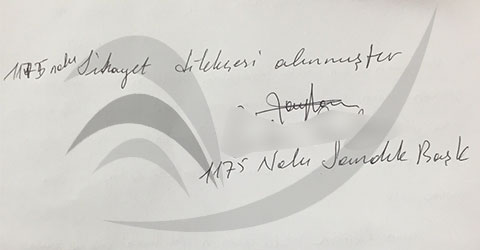 1175 nolu Şikayet dilekçesi alınmıştır
1175 Nolu Sandık Başk